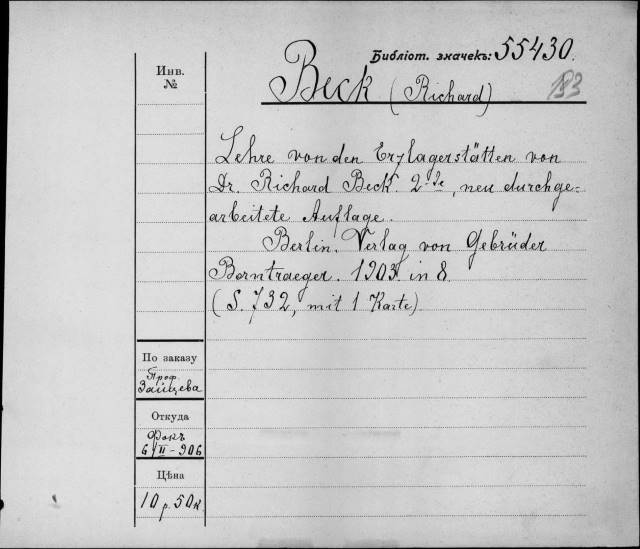 Библіот. значекъ: 55430.
Инв.
№
Beck (Richard)
183
Lehre von den Erzlagerstätten von
Dr. Richard Beck. 2-te, neu durchge-
arbeitete Auflage.
Berlin. Verlag von Gebrüder
Borntraeger. 1903. in 8.
(S. 732, mit 1 Karte)
По заказу
Проф.
Зайцева
Откуда
Фокъ
6/II-906
Цѣна
10 р. 50 к.